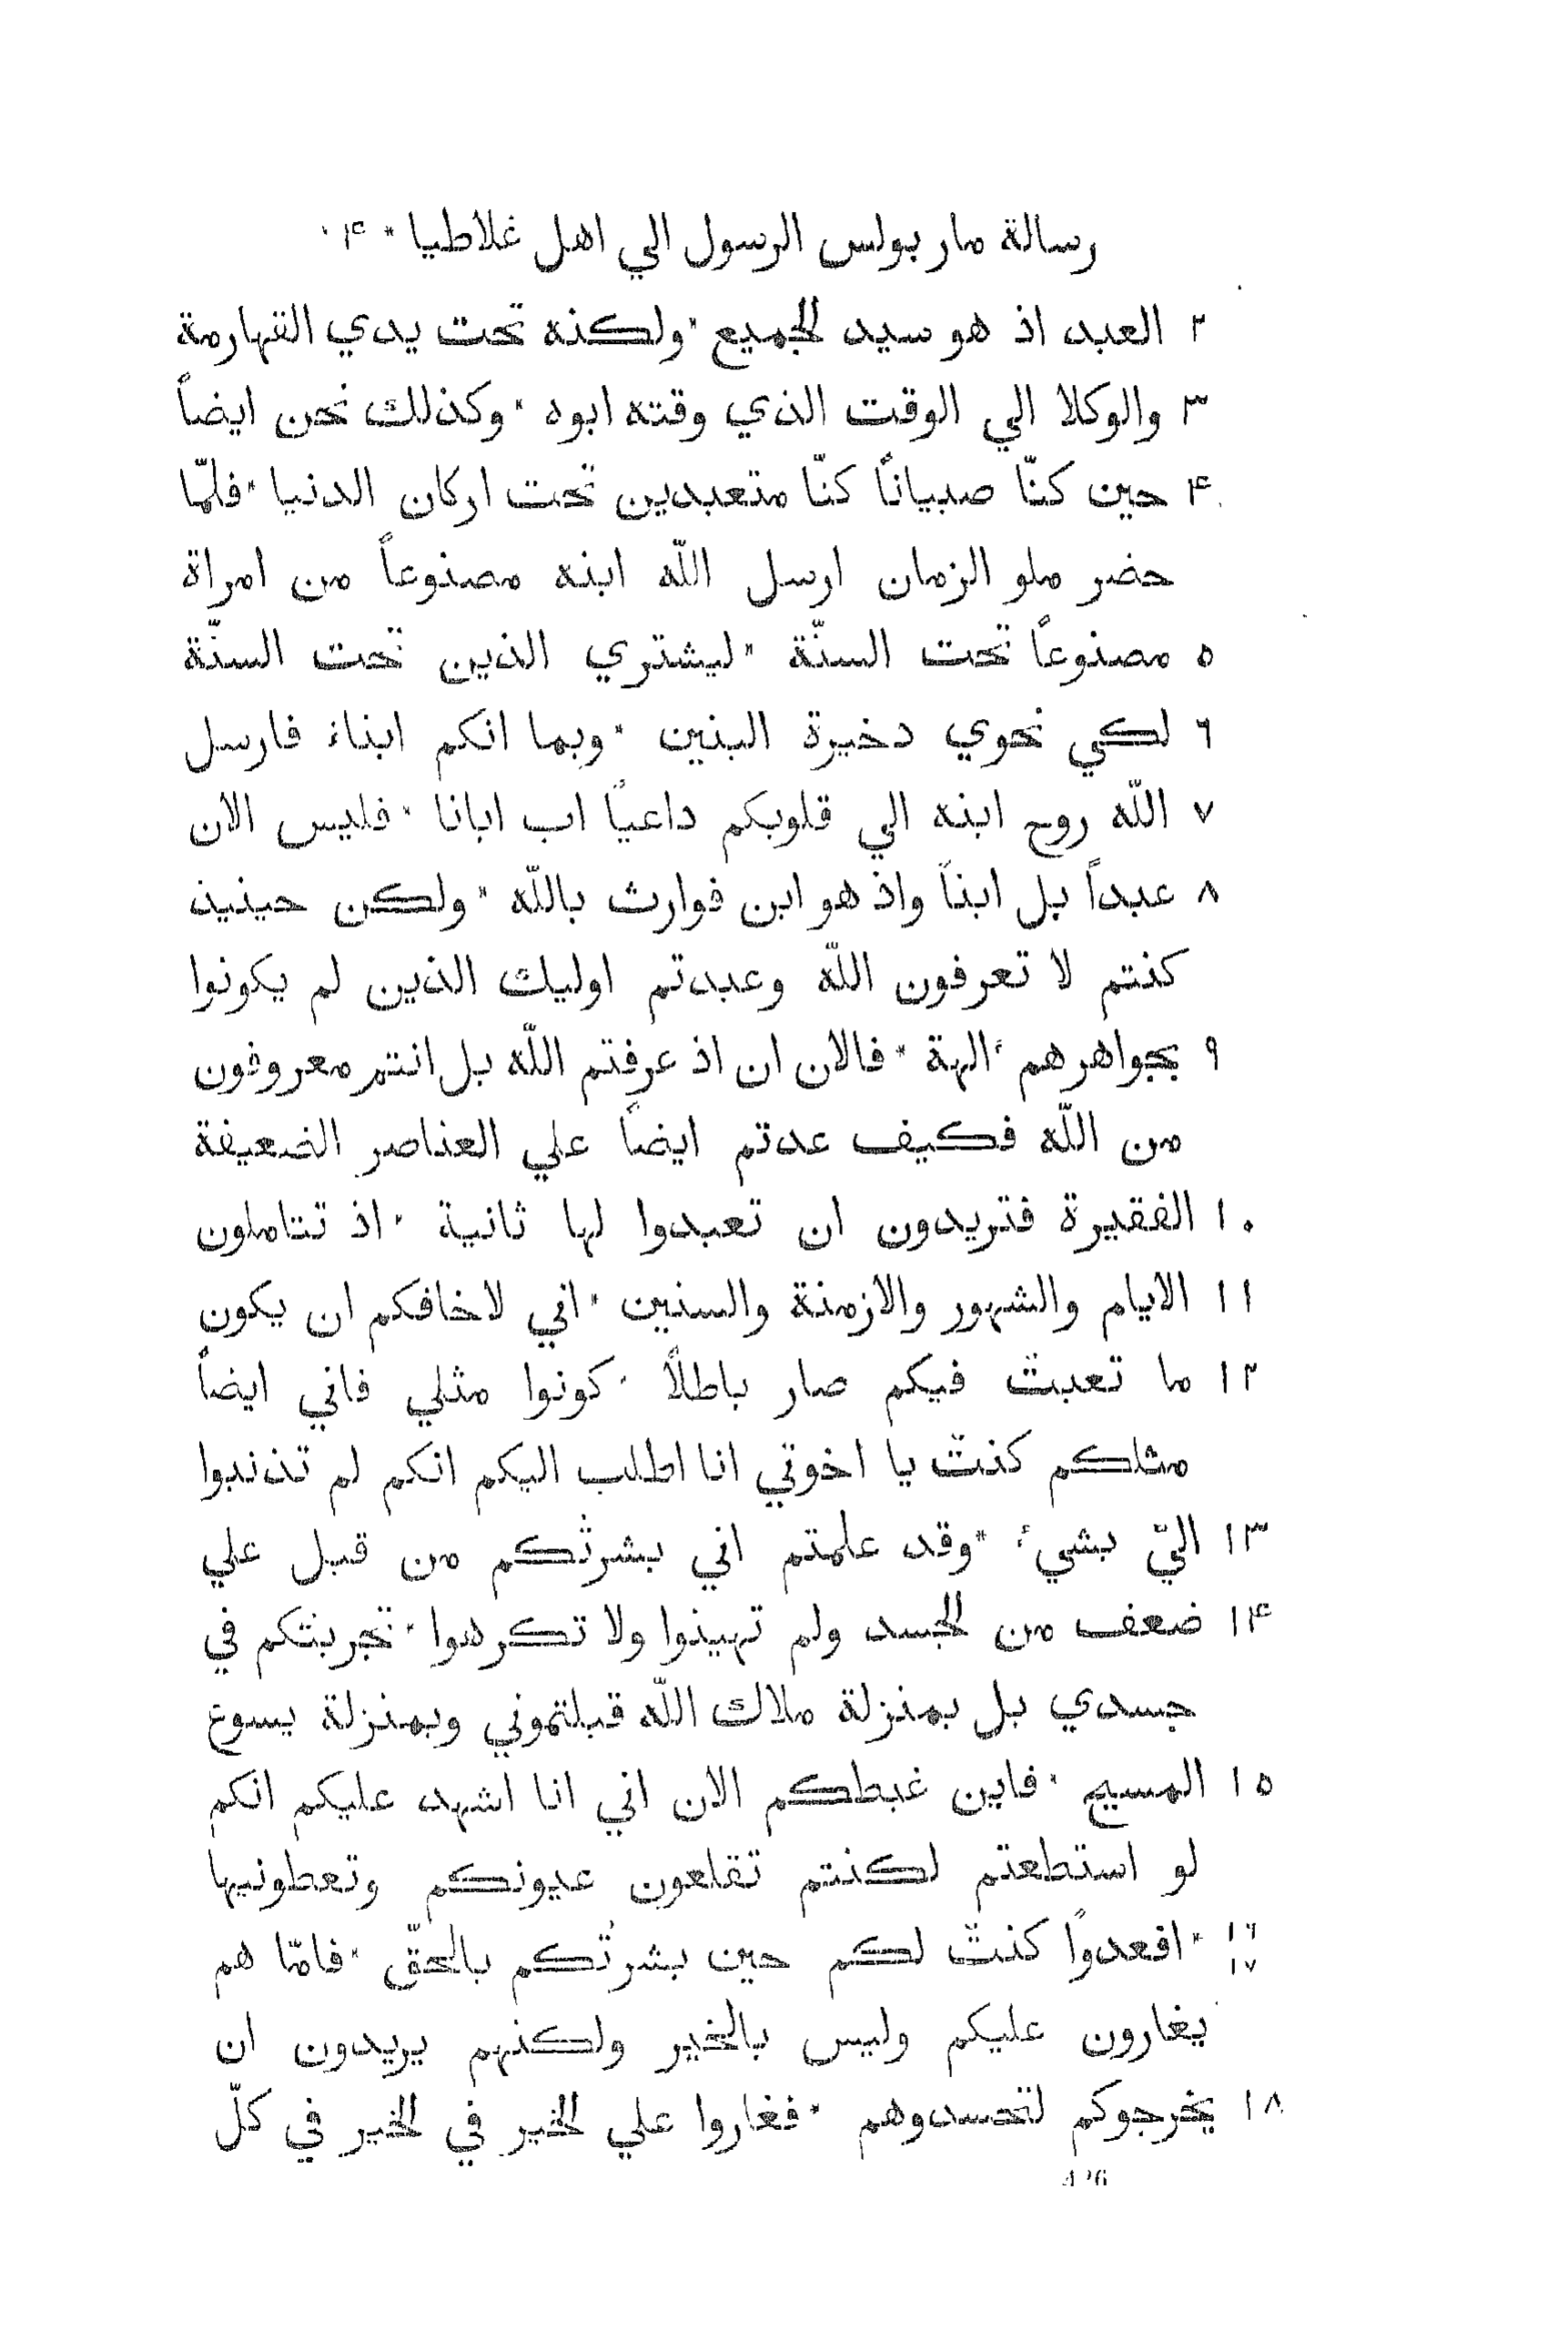 رسالة مار بولس الرسول الي اهل غلاطيا * ۴ ·
٢ العبد اذ هو سيد للجميع * ولكنه تحت يدي القهارمة
٣ والوكلا الي الوقت الذي وقته ابوه * وكذلك نحن ايضاً
۴ حين كنّا صبياناً كنّا متعبدين تحت اركان الدنيا * فلمّا
حضر ملو الزمان ارسل اللّه ابنه مصنوعاً من امراة
٥ مصنوعاً تحت السنّة * ليشتري الذين تحت السنّة
٦ لكي نحوي دخيرة البنين * وبما انكم ابناء فارسل
٧ اللّه روح ابنه الي قلوبكم داعياً اب ابانا * فليس الان
٨ عبداً بل ابناً واذ هو ابن فوارث باللّه * ولكن حينيذ
كنتم لا تعرفون اللّه وعبدتم اوليك الذين لم يكونوا
٩ بجواهرهم ءالهة * فالان ان اذ عرفتم اللّه بل انتم معروفون
من اللّه فكيف عدتم ايضاً علي العناصر الضعيفة
١٠ الفقيرة فتريدون ان تعبدوا لها ثانية * اذ تتاملون
١١ الايام والشهور والازمنة والسنين * اني لاخافكم ان يكون
١٢ ما تعبتُ فيكم صار باطلاً * كونوا مثلي فاني ايضاً
مثلكم كنتُ يا اخوتي انا اطلب اليكم انكم لم تذنبوا
١٣ اليّ بشيء * وقد علمتم اني بشرتُكم من قبل علي
١۴ ضعف من الجسد ولم تهينوا ولا تكرهوا * تجربتكم في
جسدي بل بمنزلة ملاك اللّه قبلتموني وبمنزلة يسوع
١٥ المسيح * فاين غبطكم الان اني انا اشهد عليكم انكم
لو استطعتم لكنتم تقلعون عيونكم وتعطونيها
١٦ ١٧ * افعدواً كنتُ لكم حين بشرتُكم بالحقّ * فامّا هم
يغارون عليكم وليس بالخير ولكنهم يريدون ان
١٨ يخرجوكم لتحسدوهم * فغاروا علي الخير في الخير في كلّ
426